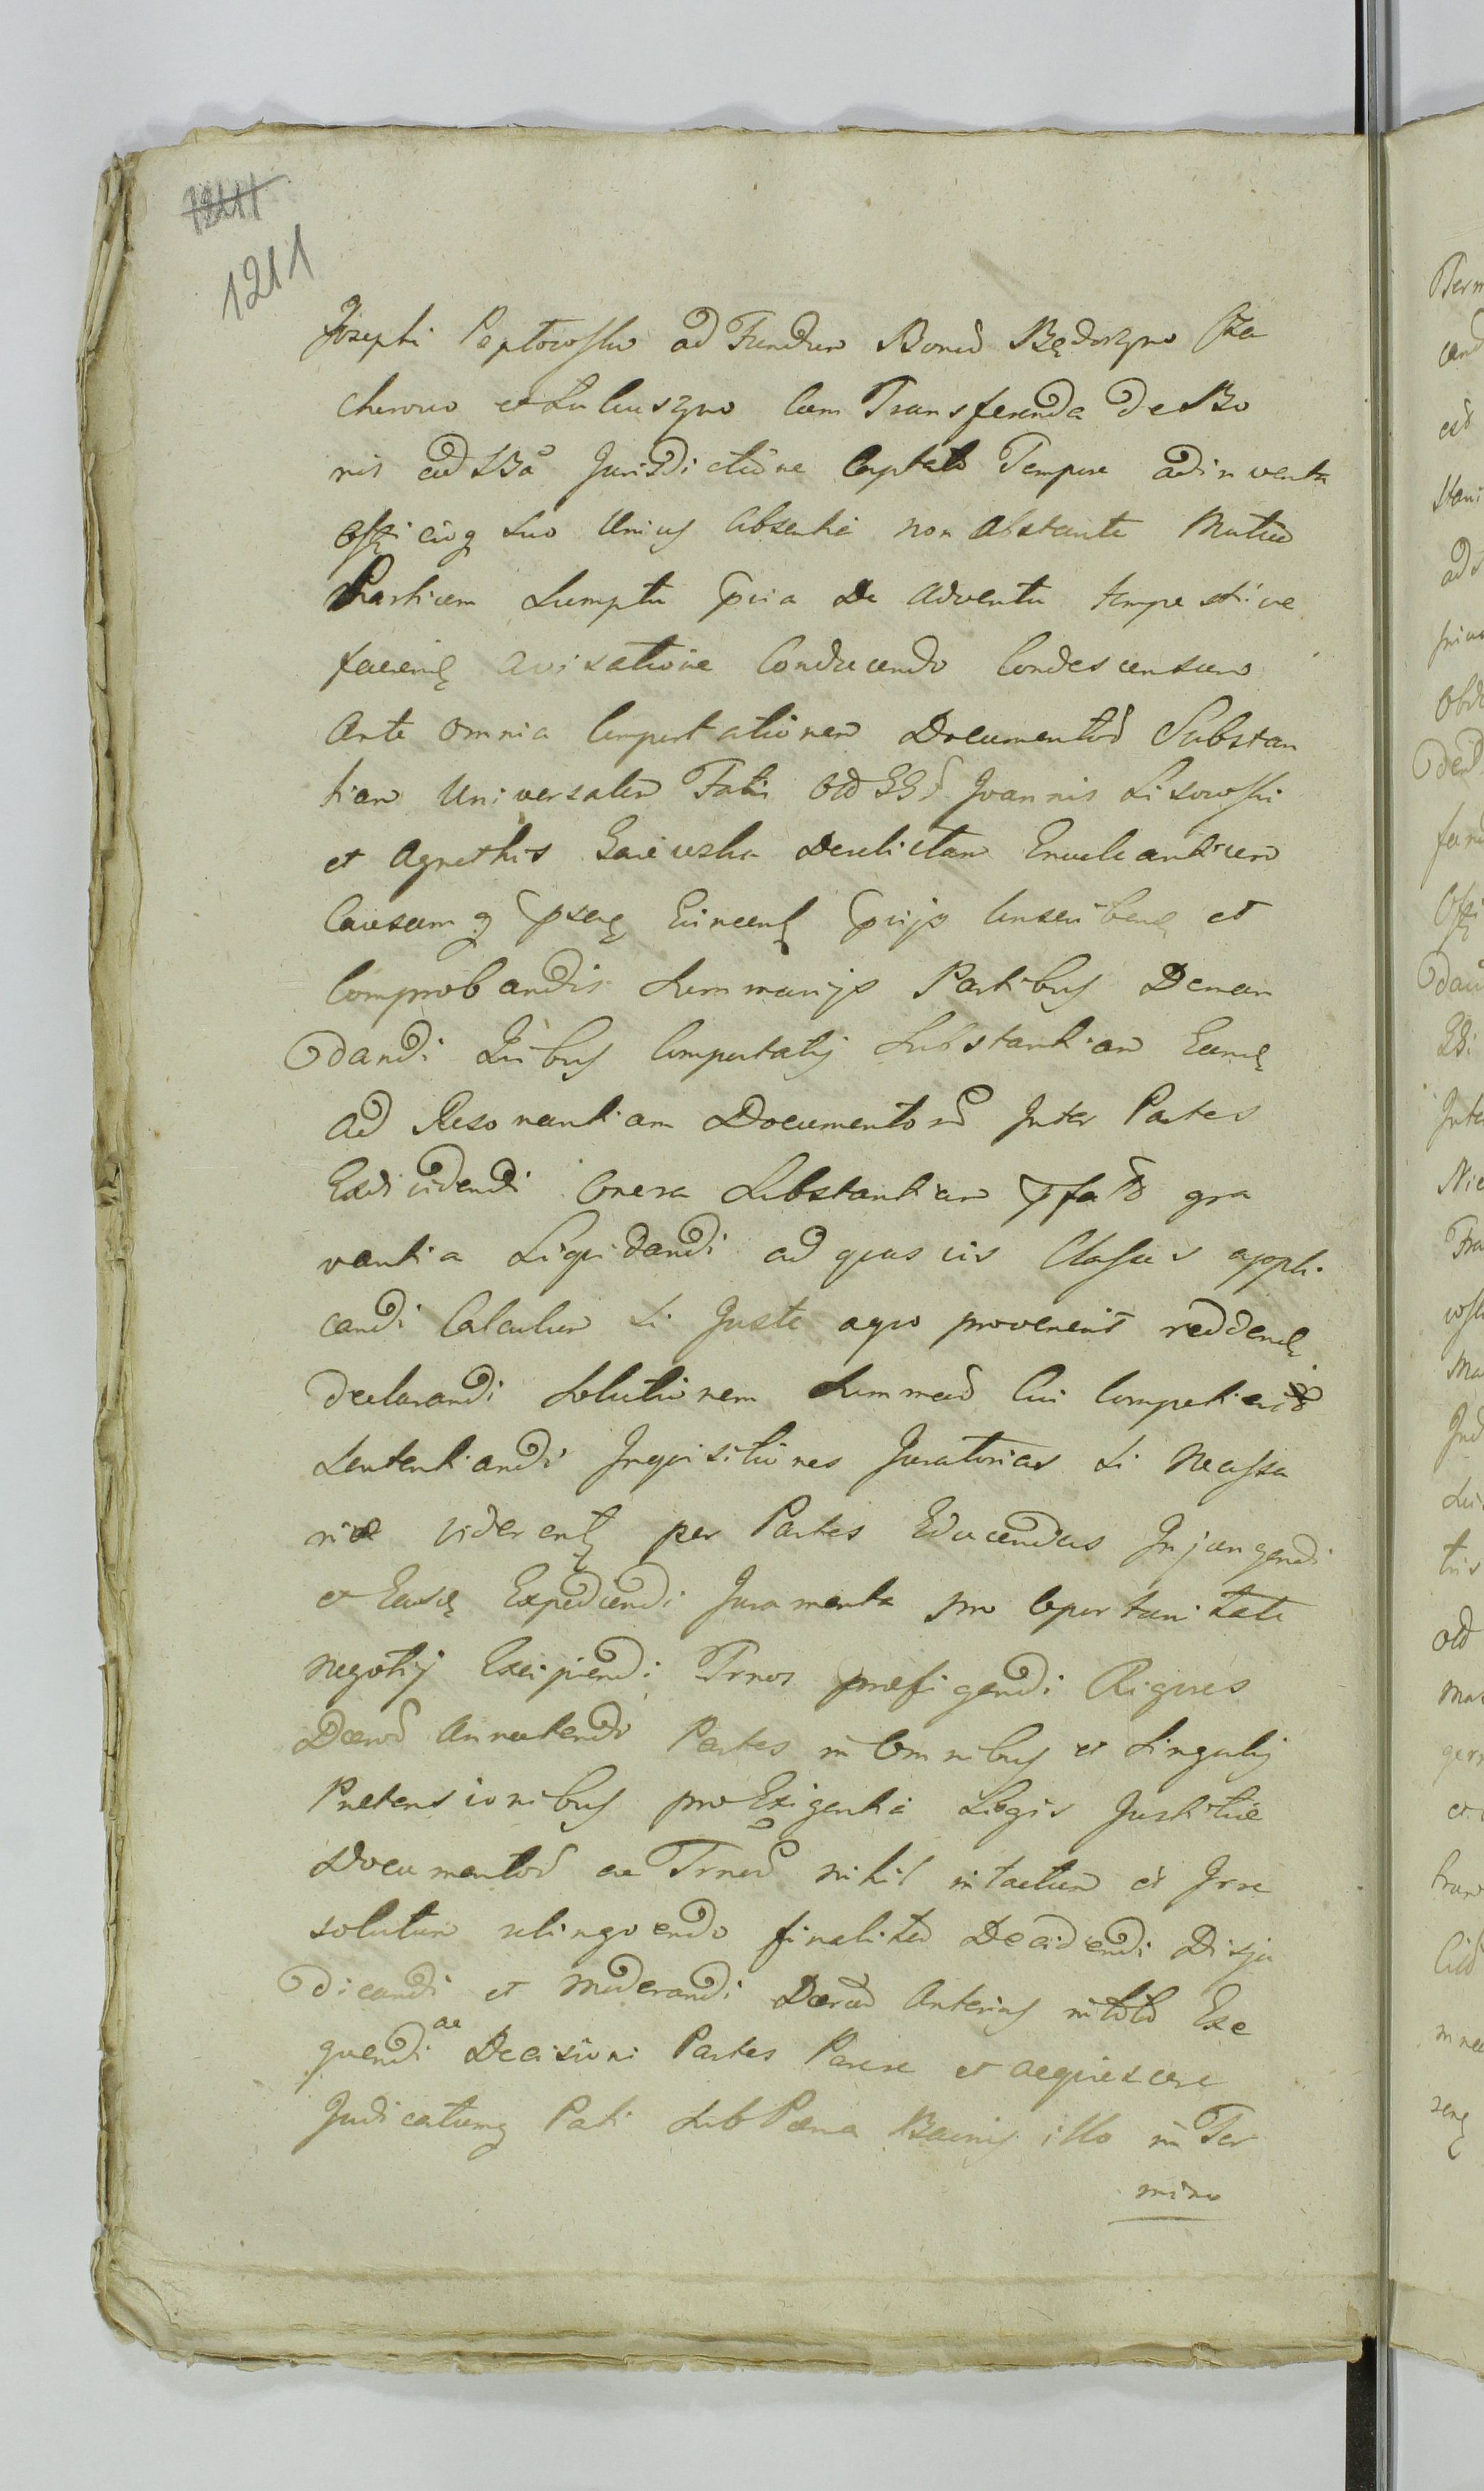 1211
1211
Josephi Peptowsku ad Fundum Bonor Będoszyno Cza
chorowo et Lulewszyno Cum Transferenda de Bo
nis ad Ba Jurisdictione Captato Tempore adinventu
Officioq suo Unius Absentia non Obstante Mutuo
Partium Sumptu pvia De Adventu tempestive
facienda avisatione Conducendo Condescensum
Ante Omnia Comportationem Documentor Substan
tiam Universalem Fatis Old GGd Joannis Lisowski
et Agnethis Derelictam Enucleantium
Causamq psem pijs Conscribend et
Comprobandis Summarijs Partibus Deman
dandi Quibus Comportatis Substantiam Eand
ad Resonantiam Documentor Inter Partes
Exdividendi Onera Substantiam pfatt gra
vantia Liquidandi ad quasvis Classes appli
candi Calculum Si Juste aquo provenerit reddend
declarandi Solutionem Summar Cui Competierit
Sententiandi Inquisitiones Juratorias Si Necessa
riæ viderent per Partes Educendas Injungendi
et Easd Expediendi Juramenta pro Oportunitate
Negotij Excipiendi Trnos præfigendi Rigores
Decror Annectendo Partes in Omnibus et Singulis
Prætensionibus pro Exigentia Legis Justitiæ
Documentor ac Trnor nihil intactum et Irre
solutum relinquendo finaliter Decidendi Disju
dicandi et Moderandi Decrum Anterius in toto Exe
quendi ac Decisioni Partes Parere et acquiescere
Judicatumq Pati Sub Pæna Bannis illo in Ter
mino